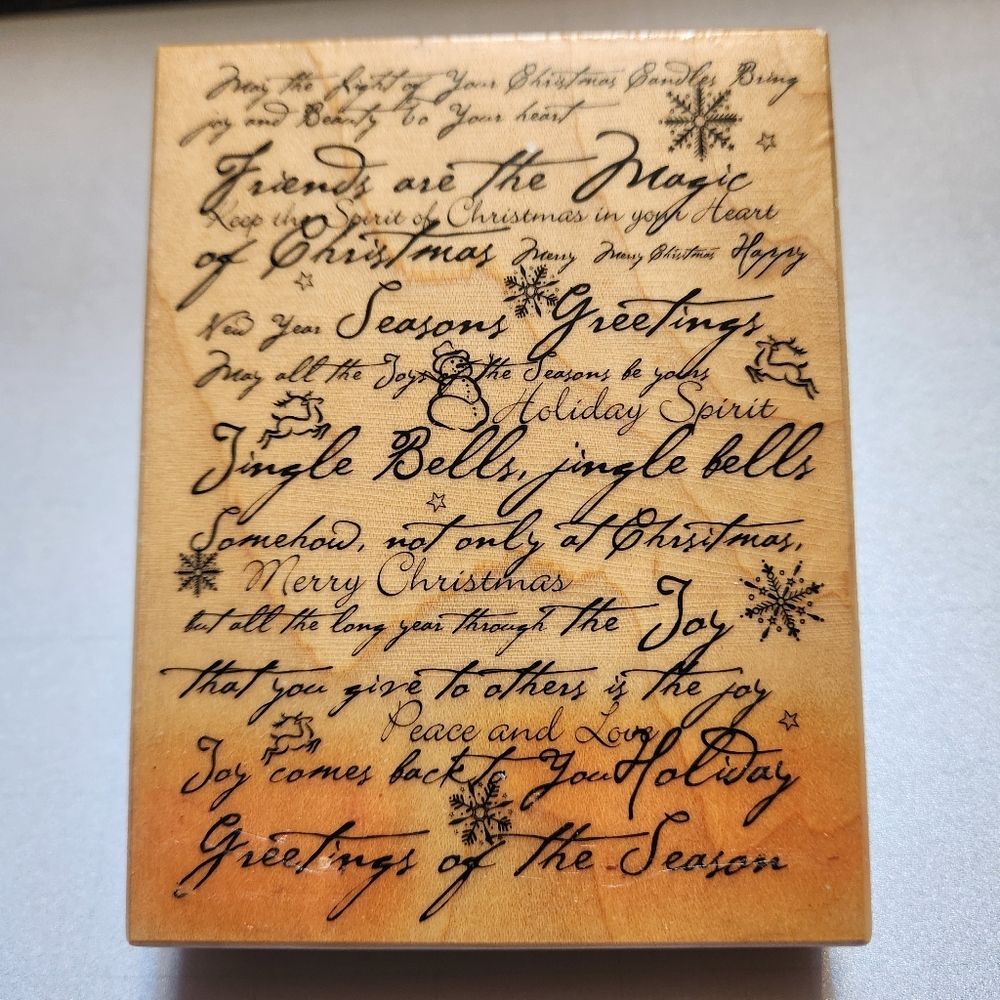 May the Light of Your Christmas Candles Bring
joy and Beauty to Your heart
Friends are the Magic
Keep the Spirit of Christmas in your Heart
of Christmas Merry Merry Christmas Happy
New Year Seasons Greetings
May all the Joys of the Seasons be yours
Holiday Spirit
Jingle Bells, jingle bells
Somehow, not only at Chrisitmas,
Merry Christmas
but all the long year through the Joy
that you give to others is the joy
Peace and Love
Joy comes back to You Holiday
Greetings of the Season